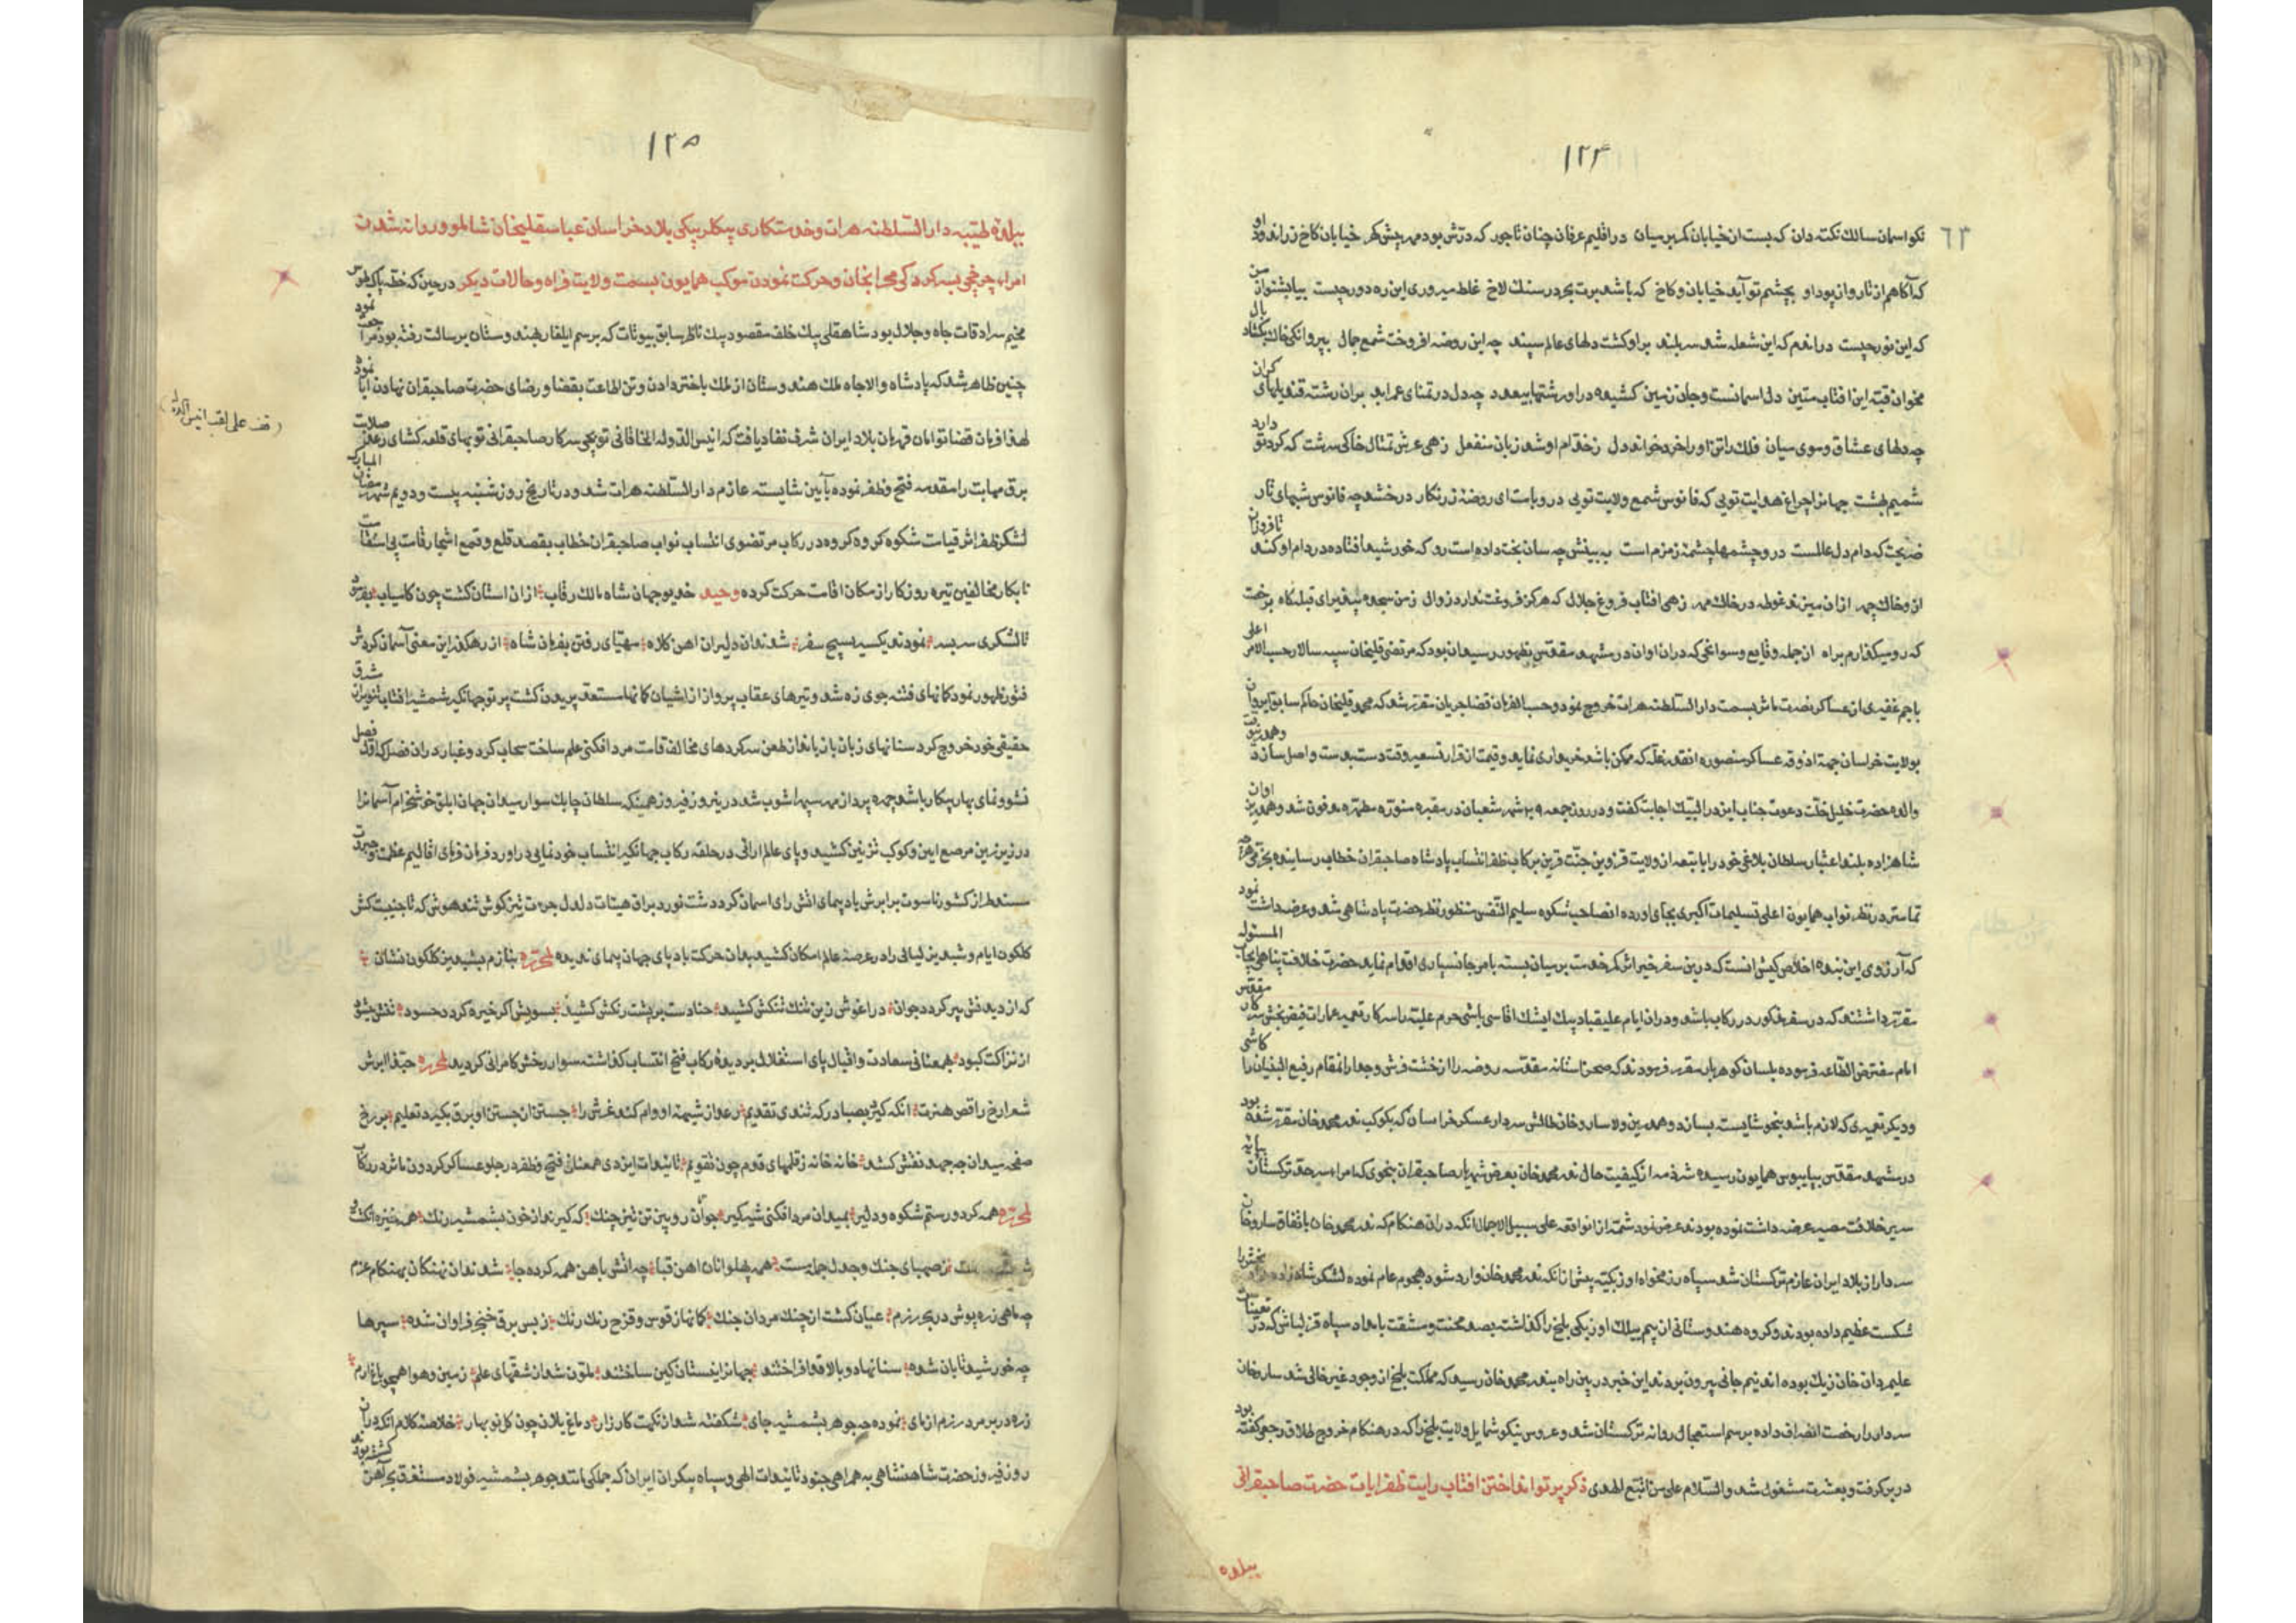 ١٢٤
٦٣
نکو اسمان سالك نکته دان که بست از خیابان کمر بر میان در اقلیم عرفان چنان تاجور که درش بود مهر خیابان کاخ زر اندود او
که آکاهم از تار و از پود او بچشم تو آید خیابان و کاخ که باشد عبرت بحر در سنك لاخ غلط میروی این ره دور چیست بیا بشنو از من
که این نور چیست در اندم که این شعله شد سر بلند بر او کشت دلهای عالم سپند چه این روضه افروخت شمع جمال بپروانکی بال
مخوان قبه این افتاب متین دل اسمانست و جان زمین کشیده در او رشتها بیعدد چه دل در تمنای عمر ابد بران رشته قندیلهای کران
چه دلهای عشاق و موی میان فلك راتن او را خرد خواند دل زخدام او شد زبان منفعل زهی عرش تمثال خاکی سرشت که کرد تو دارد
شمیم بهشت جهانرا چراغ هدایت تویی که فانوس شمع ولایت تویی در و بامت ای روضه زرنکار درخشد چه فانوس شبهای تار
ضریحت که دام دل عالمست در و چشمها چشمه زمزم است به بینش چه سان بخت داده است رو که خورشید افتاده در دام او کند تا فروزان
از و خاك چهر ازان میزند غوطه در خاك مهر زهی افتاب فروغ جلال که هرکز فروغت ندارد زوال زمن سجده بپذیر ای قبله کاه
که رو میکذارم براه از جمله وقایع و سوانحی که دران اوان در مشهد مقدس بظهور رسید ان بود که مرتضی قلیخان سپه سالار حسب الامر اعلی
با جم غفیری از عساکر نصرت ماثر بسمت دار السلطنه هرات خروج نمود و حسب الفرمان قضا جریان مقرر شد که محمد قلیخان حاکم سابق ایروان
بولایت خراسان جهة اذوقه عساکر منصوره انقدر غله که ممکن باشد خریداری نماید و قیمت از قرار تسعیر وقت دست بدست واصل سازد
والده حضرت خلیل خلت دعوت جناب ایزد را لبیك اجابت کفت و در روز جمعه شهر شعبان در مقبره منوره مطهره مدفون شد و هم درین اوان
شاهزاده بلند اعتبار سلطان بلاغی خود را با تبعه از ولایت قزوین جنت قرین برکاب ظفر انتساب پادشاه صاحبقران خطاب رسانیده
تمامتر در نظر نواب همایون اعلی تسلیمات اکبری بجای اورده انصاحب شکوه سلیم النفس منظور نظر حضرت پادشاهی شد و عرضه داشت نمود
که آرزوی این بنده اخلاص کیش انست که درین سفر خیر اثر کمر خدمت بر میان بسته بامر جانسپاری اقدام نماید حضرت خلافت پناهی
مقرر داشتند که در سفر مذکور در رکاب باشد و دران ایام علیقباد بیك ایشك اقاسی باشی حرم علیه را سرکار تعمیر عمارات فیض بخش سرکار مقدس
امام مفترض الطاعه فرموده بلسان کوهربار مقرر فرمودند که صحن استانه مقدسه روضه را از خشت فرش و جدار انمقام رفیع البنیان را کاشی
و دیکر تعمیری که لازم باشد بنحو شایسته بسازد و همدرین ولا ساروخان طالش سردار عسکر خراسان که بکومك ندر محمد خان مقرر شده بود
در مشهد مقدس بپایبوس همایون رسیده شرذمه از کیفیت حال ندر محمد خان بعرض شهریار صاحبقران بنحوی که امراء سرحد ترکستان
سریر خلافت مصیر عرضه داشت نموده بودند عرض نمود شمه از انواقعه علی سبیل الاجمال انکه دران هنکام که ندر محمد خان باتفاق ساروخان
سردار از بلاد ایران عازم ترکستان شد سپاه رزمخواه اوزبکیه پیش از انکه ندر محمد خان وارد شود هجوم عام نموده لشکر شاهزاده
شکست عظیم داده بودند و کروه هندوستانی از بیم یلان اوزبکی بلخ را کذاشته بصد محنت و مشقت بامداد سپاه قزلباش که در
علیمردان خان زیك بوده اند نیم جانی بیرون بردند این خبر در بین راه بندر محمد خان رسید که مملکت بلخ از وجود غیر خالی شد ساروخان
سردار را رخصت انصراف داده برسم استعجال روانه ترکستان شد و عروس نیکو شمایل ولایت بلخ را که در هنکام خروج طلاق رجعی کفته بود
در بر کرفت و بعشرت مشغول شد والسلام علی من اتبع الهدی ذکر پرتو انداختن افتاب رایت ظفر ایات حضرت صاحبقرانی
ببلده
١٢٥
ببلده طیبه دار السلطنه هرات و خدمتکاری بیکلربیکی بلاد خراسان عباسقلیخان شاملو و روانه شدن
امراء چرخچی بسرکردکی محرابخان و حرکت نمودن موکب همایون بسمت ولایت فراه و حالات دیکر در حین که خطه پاك طوس
مخیم سرادقات جاه و جلال بود شاهقلی بیك خلف مقصود بیك ناظر سابق بیوتات که برسم ایلغار بهندوستان برسالت رفته بود مراجعت نمود
چنین ظاهر شد که پادشاه والاجاه ملك هندوستان از ملك باختر دادن و تن اطاعت بقضا و رضای حضرت صاحبقران نهادن ابا نمود
لهذا فرمان قضا توامان قهرمان بلاد ایران شرف نفاذ یافت که انیس الدوله الخاقانی توپچی سرکار صاحبقرانی توپهای قلعه کشای رعد صلابت
برق مهابت را مقدمه فتح و ظفر نموده بآیین شایسته عازم دار السلطنه هرات شد و در تاریخ روز شنبه بیست و دویم شهر رمضان المبارك
لشکر ظفر اثر قیامت شکوه کروه کروه در رکاب مرتضوی انتساب نواب صاحبقران خطاب بقصد قلع و قمع اشجار قامت بی استقامت
نابکار مخالفین تیره روزکار از مکان اقامت حرکت کرده وحید خدیو جهان شاه مالك رقاب ازان استان کشت چون کامیاب
تا لشکری سربسر نمودند یکسر بسیج سفر شدند ان دلیران اهن کلاه مهیای رفتن بفرمان شاه از رهکذر این معنی آسمان کردش
فتور ظهور نمود کمانهای فتنه جوی زه شد و تیرهای عقاب پرواز از اشیان کمانها مستعد پریدن کشت پرتو جهانکیر شمشیر افتاب تنویر از شرق
حقیقی خود خروج کرد سنانهای زبان باز باغاز طعن سرکردهای مخالف قامت مرد افکنی علم ساخت سحاب کرد و غبار دران فصل
نشو و نمای بهار پیکار باشد چهره پرداز مهر سپهر اشوب شد در نیروز فیروز همینکه سلطان چابك سوار میدان جهان ابلق خوشخرام آسمانرا
در زیر زین مرصع ایین و کوکب تزیین کشید و پای عالم ارائی در حلقه رکاب جهانکیر انتساب خود نمایی در اورد فرمان فرمای اقالیم عظمت و جبروت
مستعد از کشور ناسوت برابرش بادپیمای اتش رای اسمان کرد دشت نورد براق هیئات دلدل جرءت تیز کوش تند هوش که تا جنیبت کش
کلکون ایام و شبدیز لیالی را در عرصه عالم امکان کشید بدان حرکت بادپای جهان پیمای ندیده لمحرره بنازم بشبدیز کلکون نشان
که از دیدنش پیر کردد جوان در اغوش زین تنك تنکش کشید حنا دست بر پشت رنکش کشید بسویش اکر خیره کردد حسود
از نزاکت کبود بهمعنانی سعادت و اقبال پای استقلال بر دیده رکاب فتح انتساب کذاشته سوار رخش کامرانی کردید لمحرره حبذا ابرش
شعار رخ راقص هنرت انکه کیرد بصبا در که تندی تقدیم رعد از شیهه او وام کند غرش را جستن از جستن او برق بکیرد تعلیم بر رخ
صفحه میدان چه جهد نقش کشد خانه خانه زقلمهای قوم چون تقویم تائیدات ایزدی همعنان فتح و ظفر در جلو عساکر کردون ماثر در رکاب
لمحرره همه کرد و رستم شکوه و دلیر بمیدان مرد افکنی شیرکیر جوانان رویین تن تیز چنك که کیرند از خون بشمشیر رنك
زصهبای جنك و جدل جمله مست همه پهلوانان اهن قبا چه اتش باهن همه کرده جا شدند ان نهنکان بهنکام عزم
چه ماهی زره پوش در بحر رزم عیان کشت از چنك مردان جنك کمانها ز قوس و قزح رنك رنك ز بس برق خنجر فراوان شده سپرها
چه خورشید تابان شده سنانها دو بالا قد افراختند جهانرا نیستان کین ساختند ملون شد از شقهای علم زمین و هوا همچو باغ ارم
زره در بر مرد رزم ازمای نموده چه جوهر بشمشیر جای شکفته شد از نکهت کارزار دماغ یلان چون کل نوبهار خلاصه کلام انکه دران
روز فیروز حضرت شاهنشاهی به همراهی جنود تائیدات الهی و سپاه بیکران ایران که جملکی مانند جوهر بشمشیر فولاد مستغرق اهن کشته بودند
قف علی لقب انیس الدوله